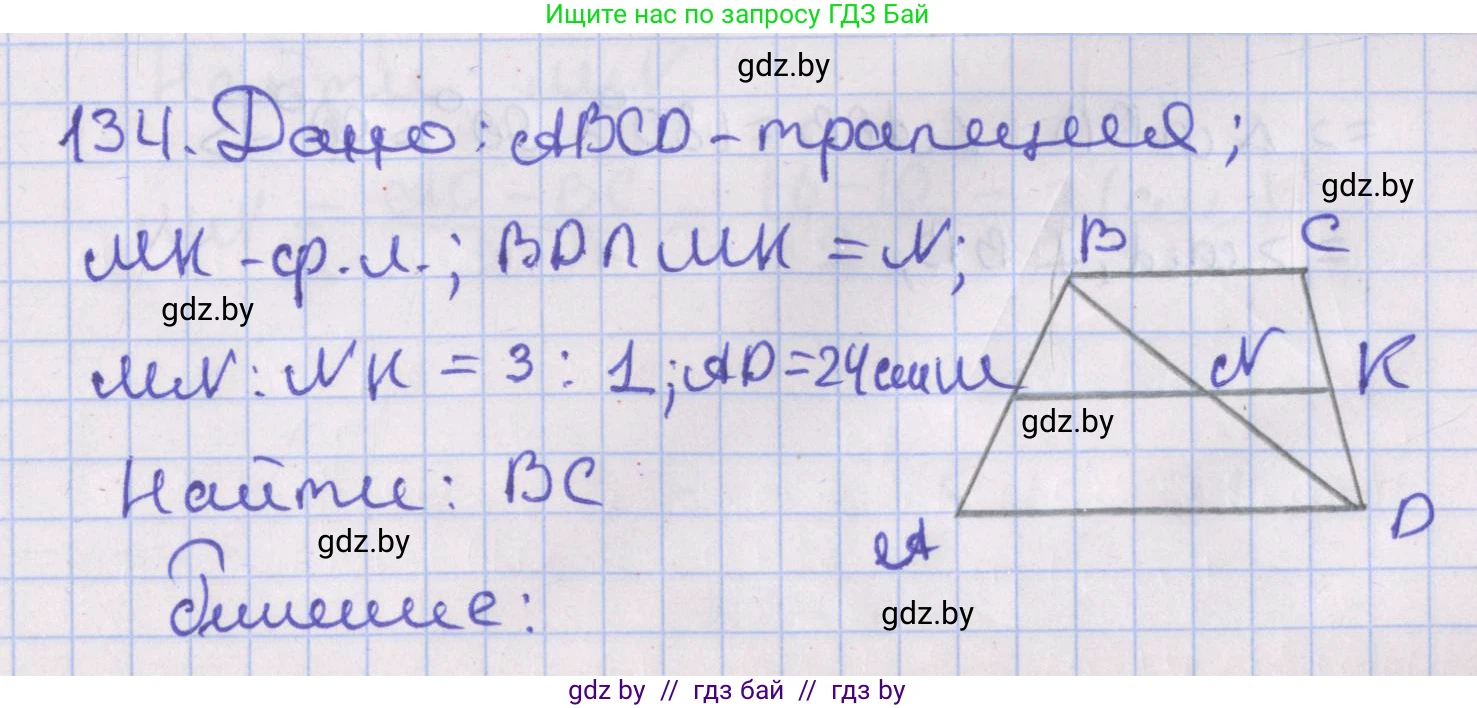 Ищите нас по запросу ГДЗ Бай
gdz.by
134. Дано: ABCD - трапеция;
gdz.by
MK - ср.л.; BD∩MK = N;
B C
gdz.by
MN : NK = 3 : 1; AD = 24 см
M N K
gdz.by
Найти: BC
gdz.by
A D
Решение:
gdz.by
gdz by // гдз бай // гдз by